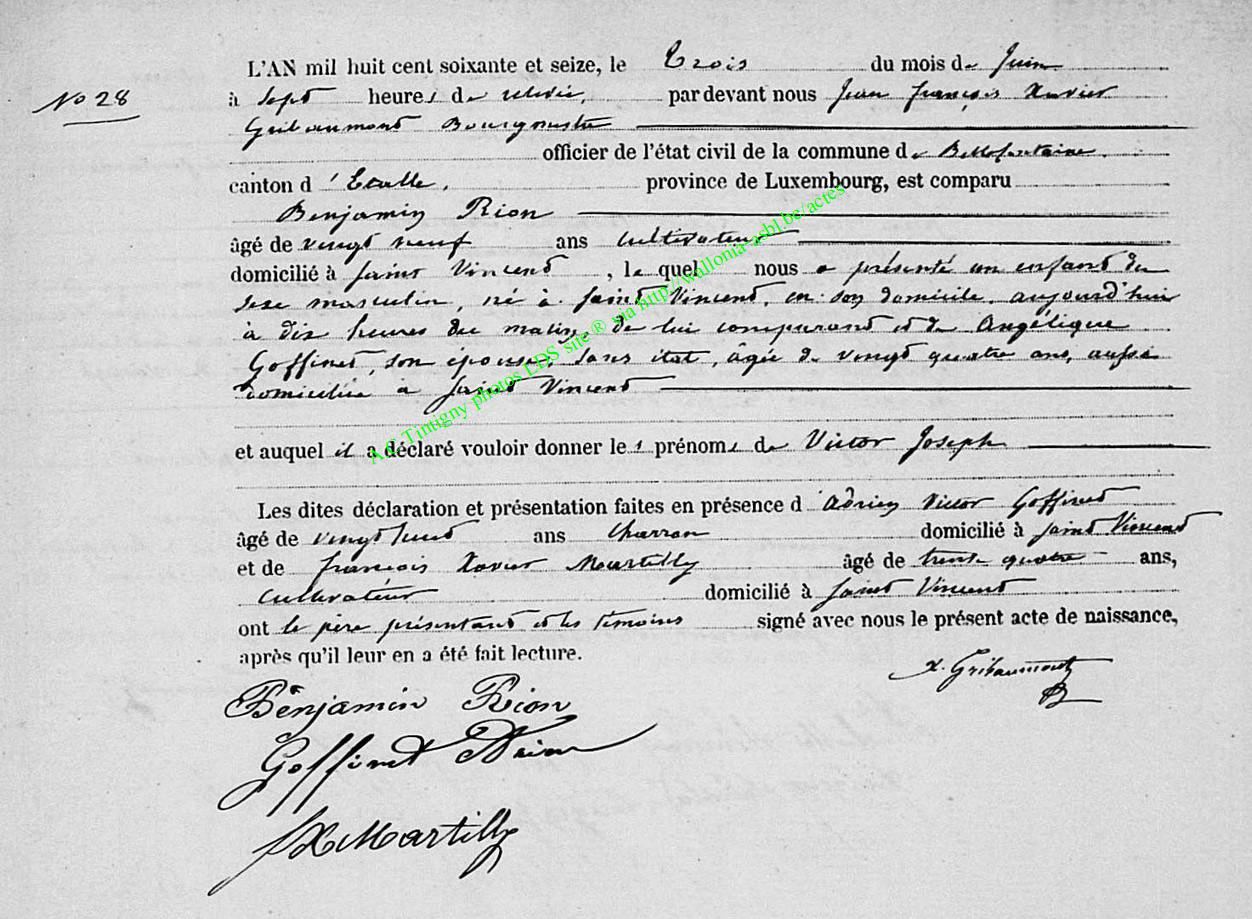 L'AN mil huit cent soixante et seize, le Trois du mois de Juin
No 28
à sept heures de relevée, par devant nous Jean François Xavier
Gribaumont Bourgmestre
officier de l'état civil de la commune de Bellefontaine,
canton d'Etalle, province de Luxembourg, est comparu
Benjamin Rion
âgé de vingt neuf ans cultivateur
domicilié à Saint Vincent, lequel nous a présenté un enfant du
sexe masculin, né à Saint Vincent, en son domicile, aujourd'hui
à dix heures du matin, de lui comparant et de Angélique
Goffinet, son épouse, sans état, âgée de vingt quatre ans, aussi
domiciliée à Saint Vincent
et auquel il a déclaré vouloir donner les prénoms de Victor Joseph
Les dites déclaration et présentation faites en présence d'Adrien Victor Goffinet
âgé de vingt ans charron domicilié à Saint Vincent
et de François Xavier Martilly âgé de trente quatre ans,
cultivateur domicilié à Saint Vincent
ont le père présentant et les témoins signé avec nous le présent acte de naissance,
après qu'il leur en a été fait lecture.
X. Gribaumont
Benjamin Rion
Goffinet
FX Martilly
A.C Tintigny photos LDS site ® via http://wallonia-asbl.be/actes